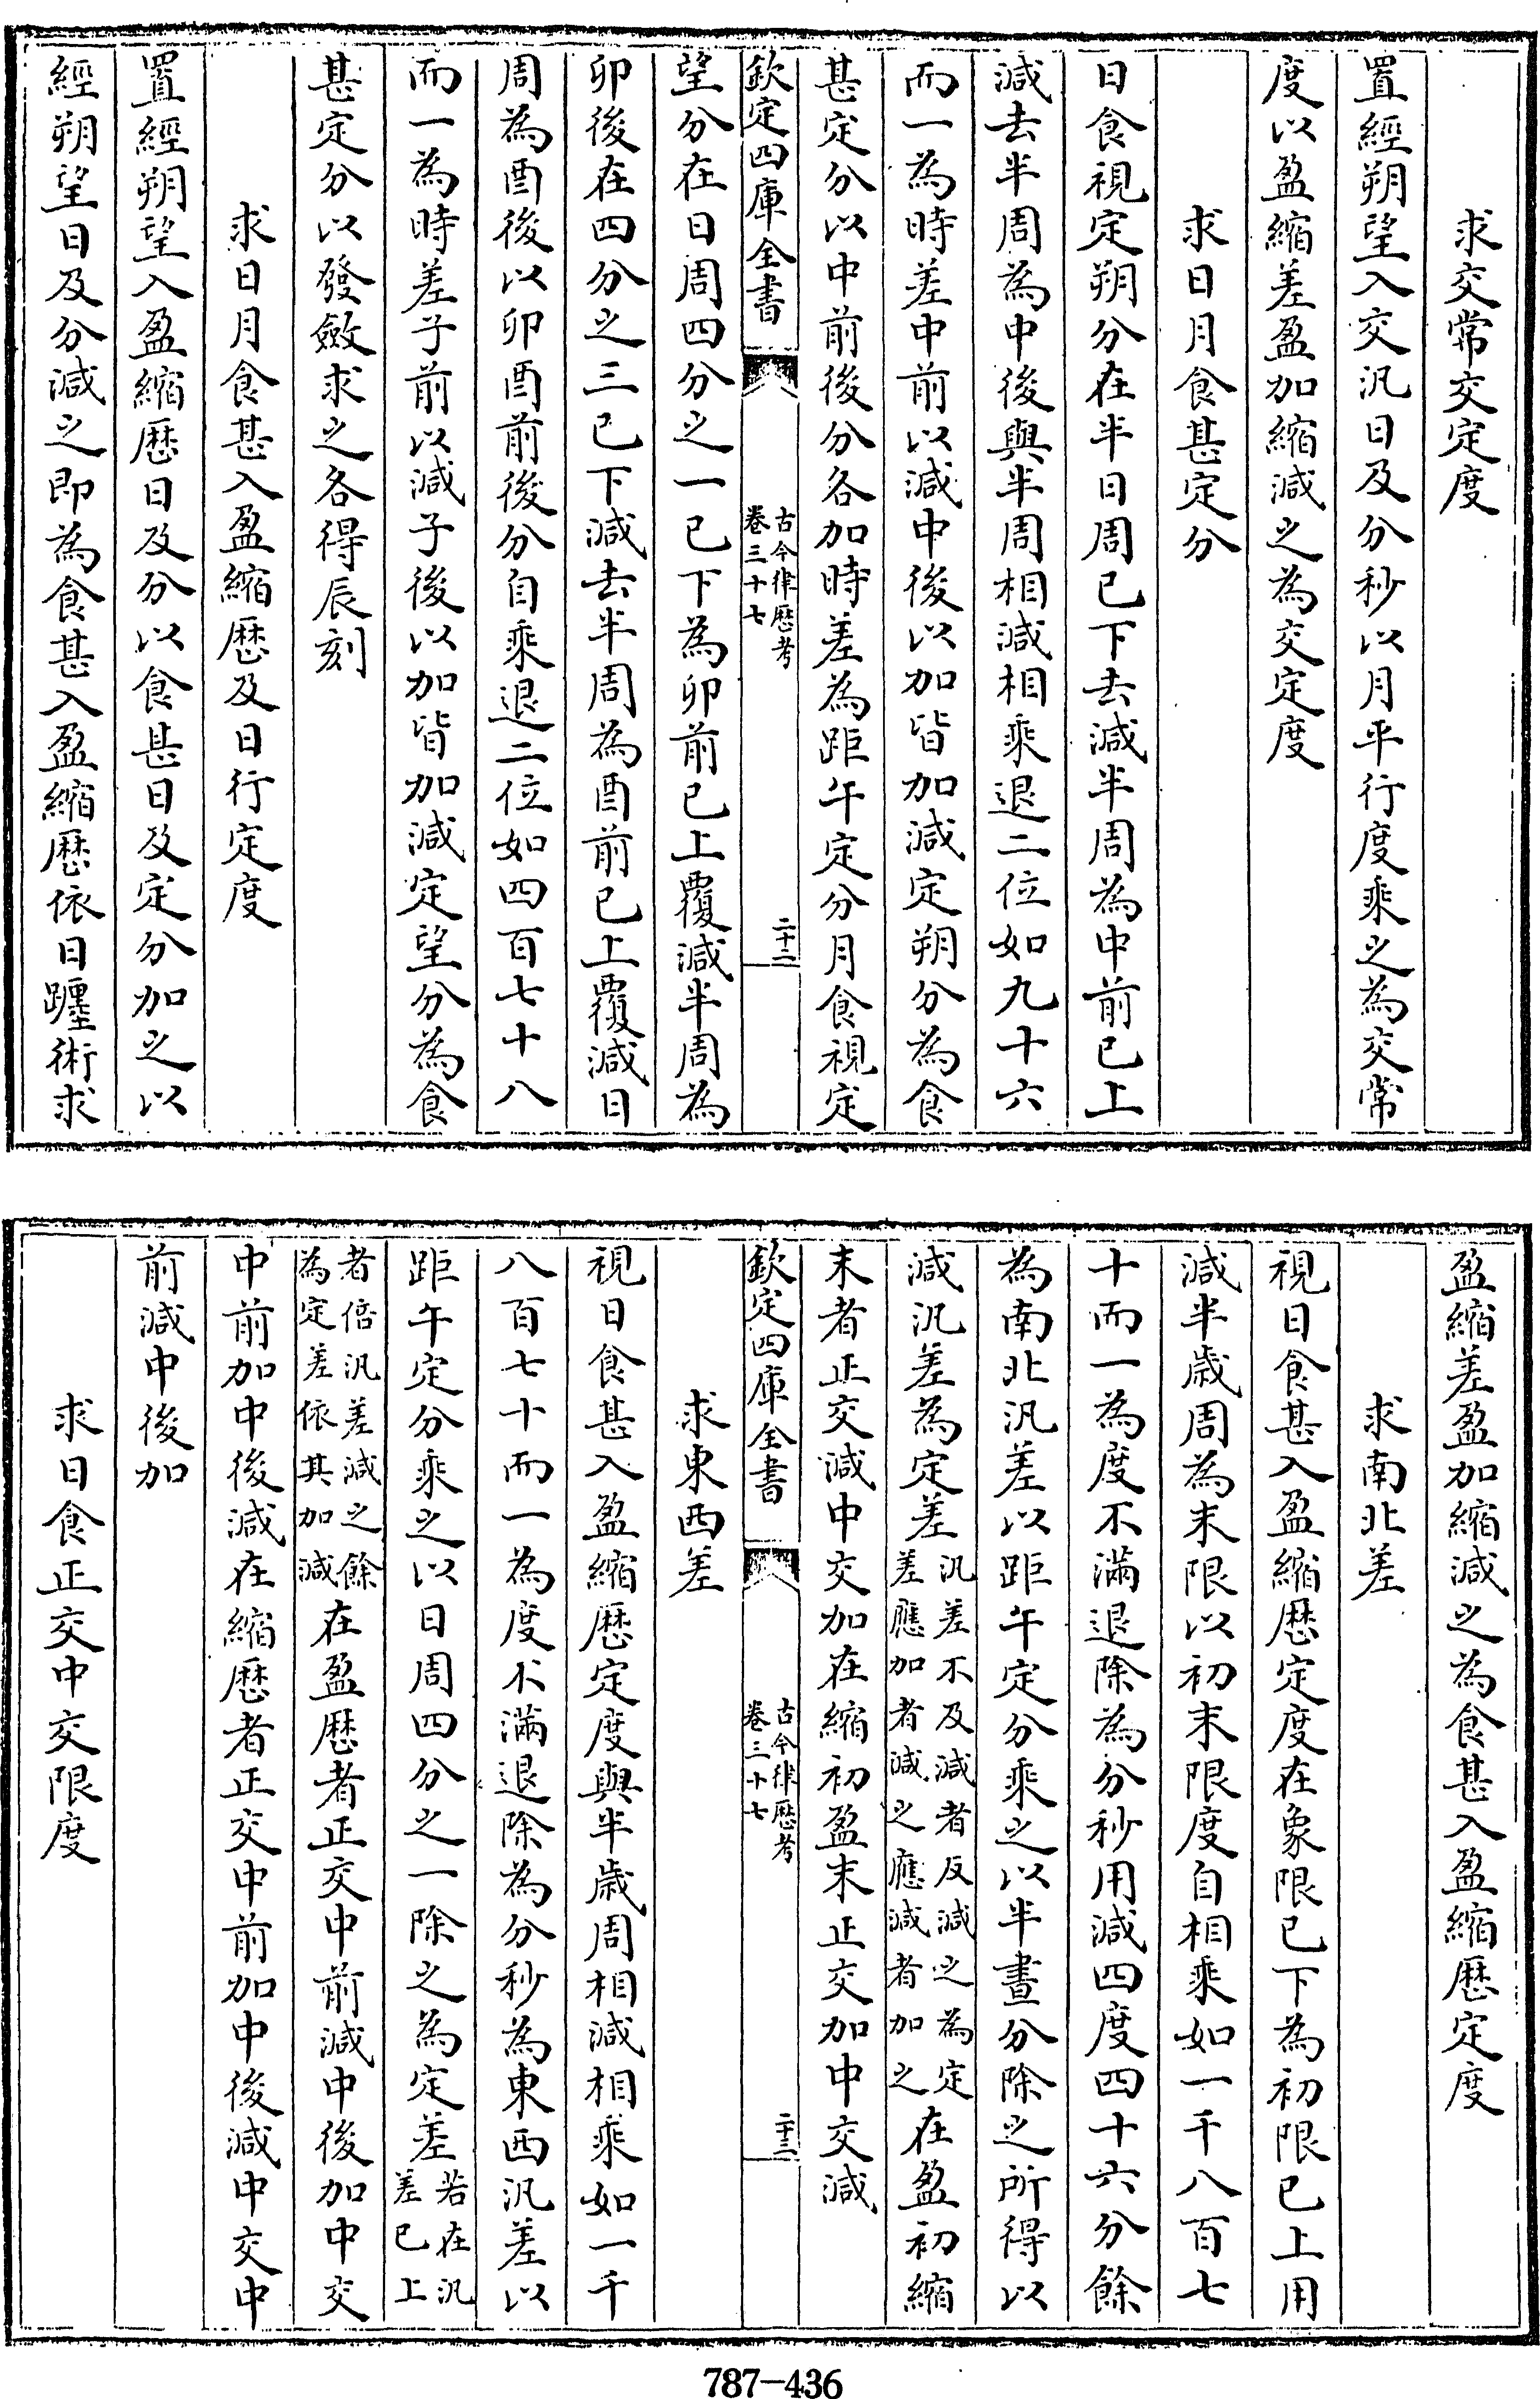 求交常交定度
置經朔望入交汎日及分秒以月平行度乘之為交常
度以盈縮差盈加縮減之為交定度
求日月食甚定分
日食視定朔分在半日周已下去減半周為中前已上
減去半周為中後與半周相減相乘退二位如九十六
而一為時差中前以減中後以加皆加減定朔分為食
甚定分以中前後分各加時差為距午定分月食視定
欽定四庫全書
古今律厯考
卷三十七
二十二
望分在日周四分之一已下為卯前已上覆減半周為
卯後在四分之三已下減去半周為酉前已上覆減日
周為酉後以卯酉前後分自乘退二位如四百七十八
而一為時差子前以減子後以加皆加減定望分為食
甚定分以發斂求之各得辰刻
求日月食甚入盈縮厯及日行定度
置經朔望入盈縮厯日及分以食甚日及定分加之以
經朔望日及分減之即為食甚入盈縮厯依日躔術求
盈縮差盈加縮減之為食甚入盈縮厯定度
求南北差
視日食甚入盈縮厯定度在象限已下為初限已上用
減半歲周為末限以初末限度自相乘如一千八百七
十而一為度不滿退除為分秒用減四度四十六分餘
為南北汎差以距午定分乘之以半晝分除之所得以
減汎差為定差汎差不及減者反減之為定
差應加者減之應減者加之在盈初縮
末者正交減中交加在縮初盈末正交加中交減
欽定四庫全書
古今律厯考
卷三十七
二十三
求東西差
視日食甚入盈縮厯定度與半歲周相減相乘如一千
八百七十而一為度不滿退除為分秒為東西汎差以
距午定分乘之以日周四分之一除之為定差若在汎
差已上
者倍汎差減之餘
為定差依其加減在盈厯者正交中前減中後加中交
中前加中後減在縮厯者正交中前加中後減中交中
前減中後加
求日食正交中交限度
787-436